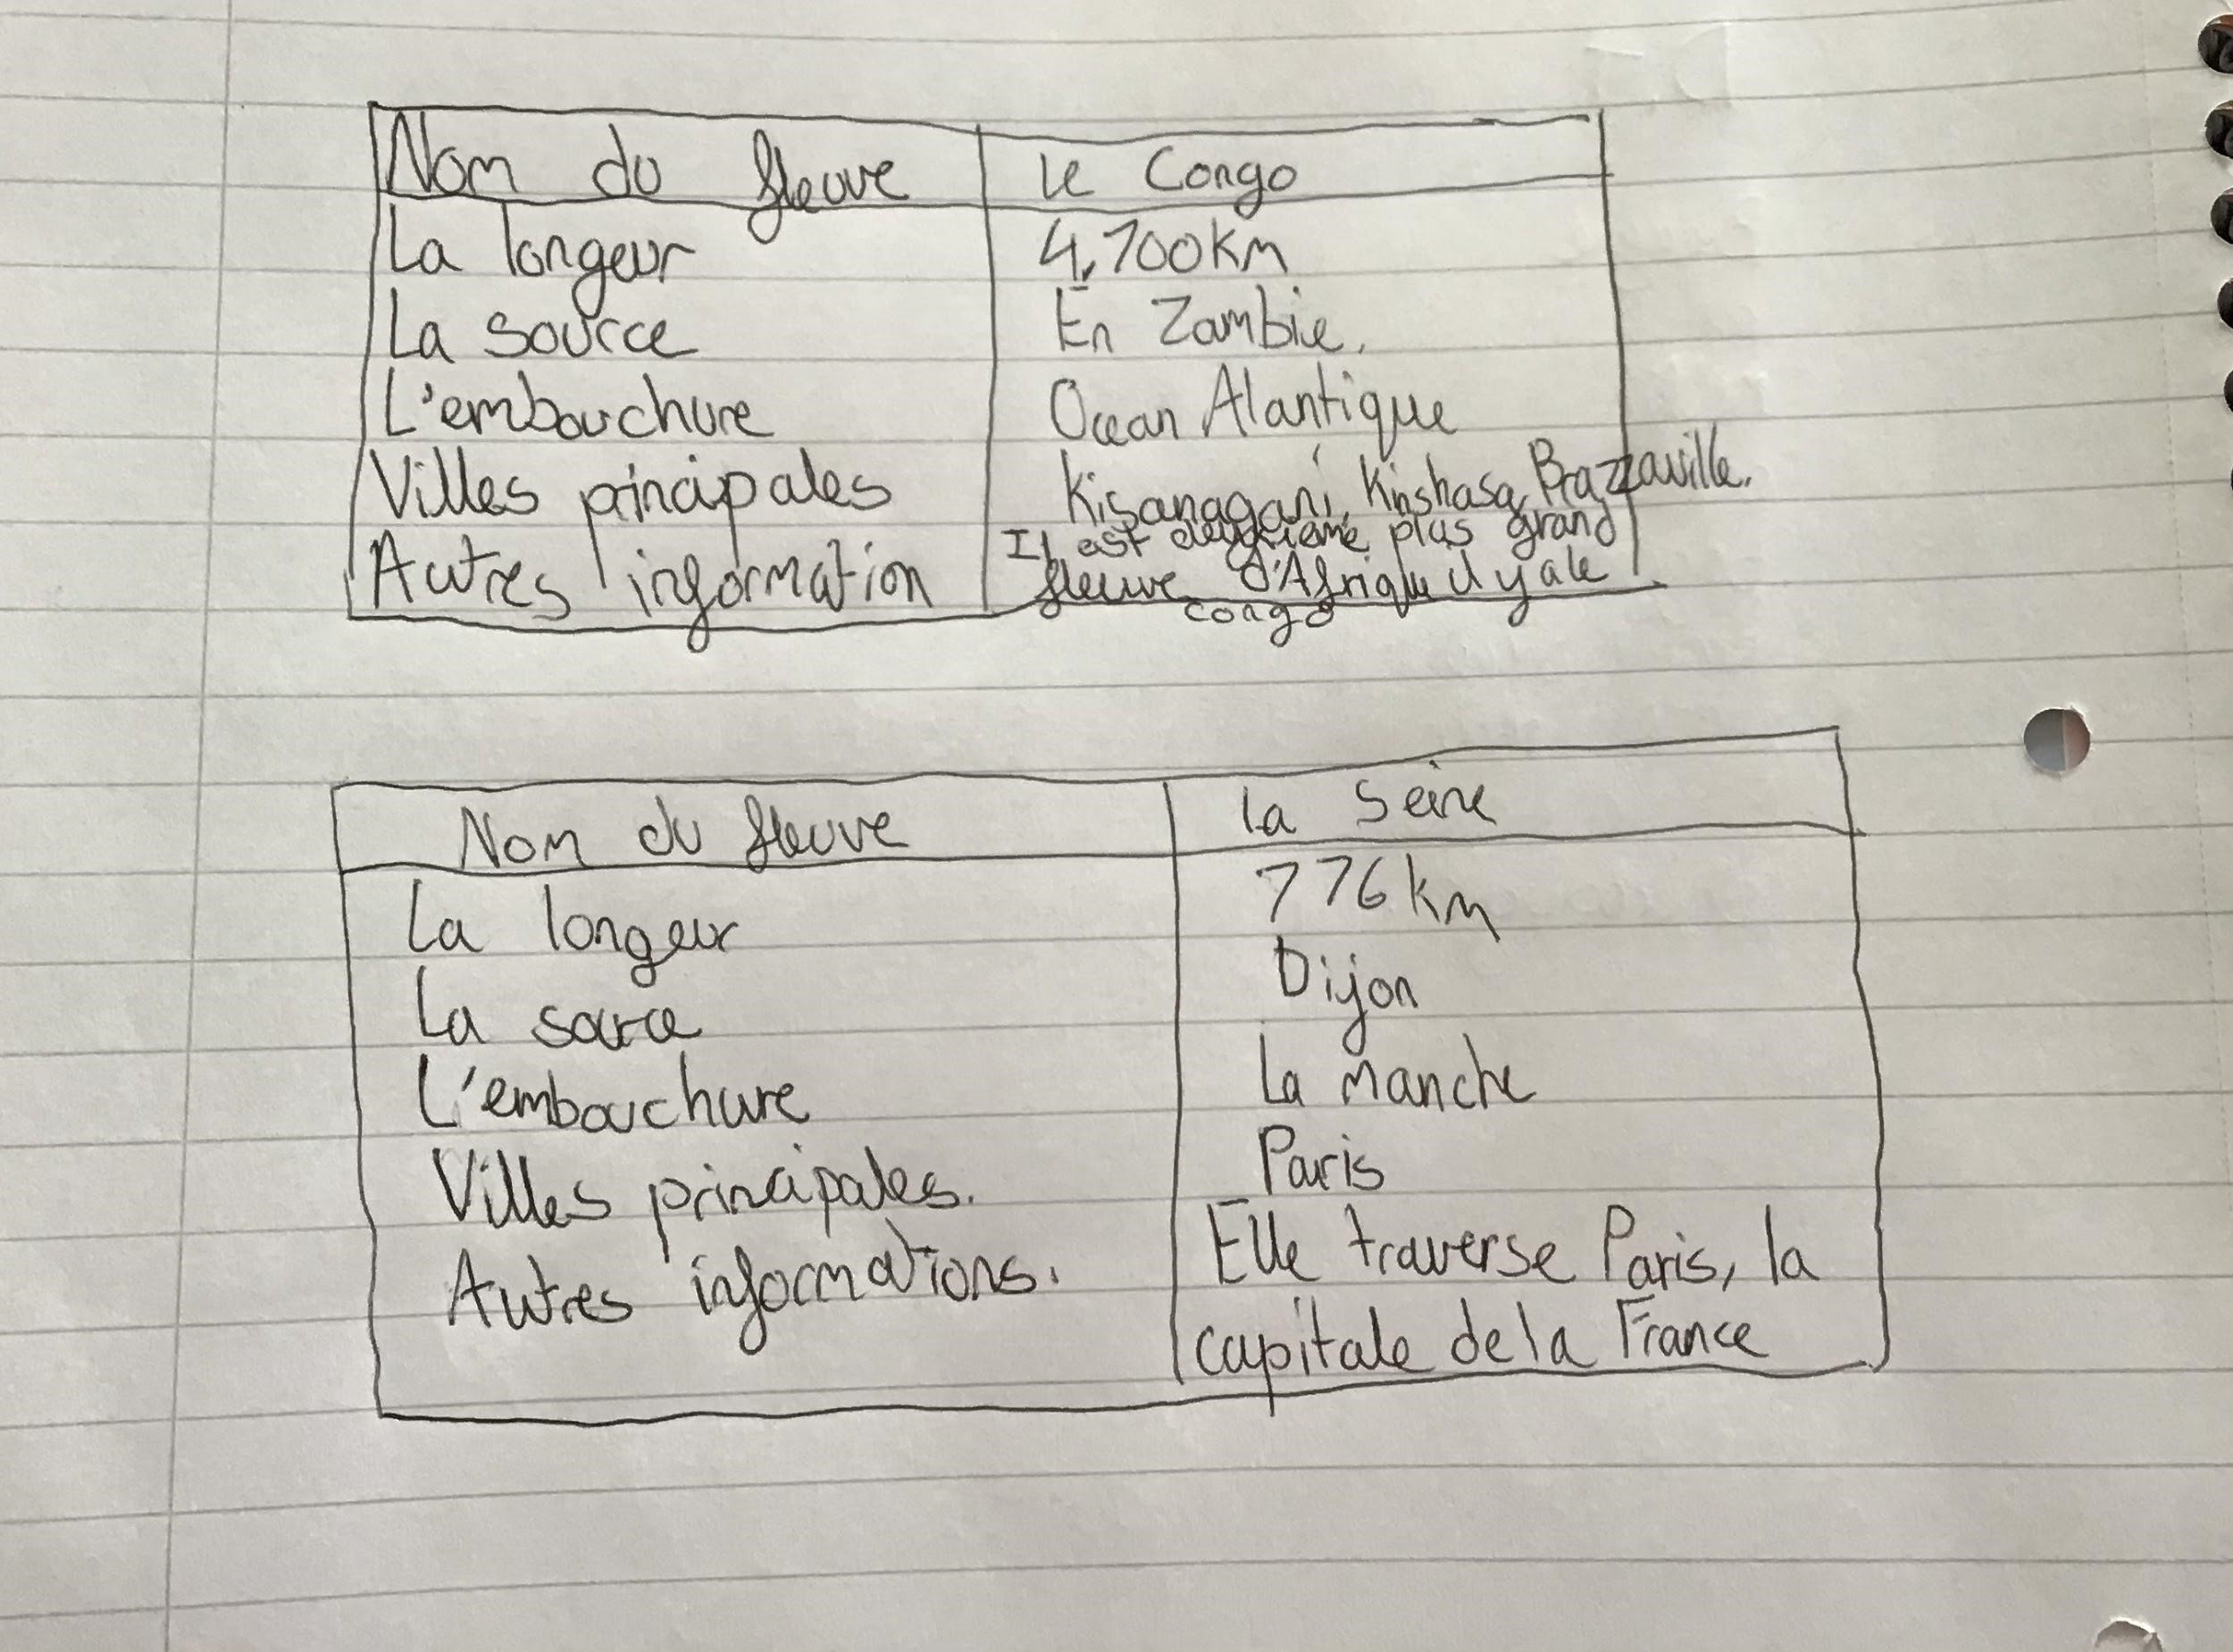 Nom du fleuve le Congo
La longeur 4,700km
La source En Zambie.
L'embouchure Ocean Alantique
Villes pincipales Kisanagani, Kinshasa, Brazzaville.
Autres information Il est deuxième plus grand
fleuve d'Afrique il y a le
congo
Nom du fleuve la Seine
La longeur 776km
La source Dijon
L'embouchure La Manche
Villes principales. Paris
Autres informations. Elle traverse Paris, la
capitale de la France